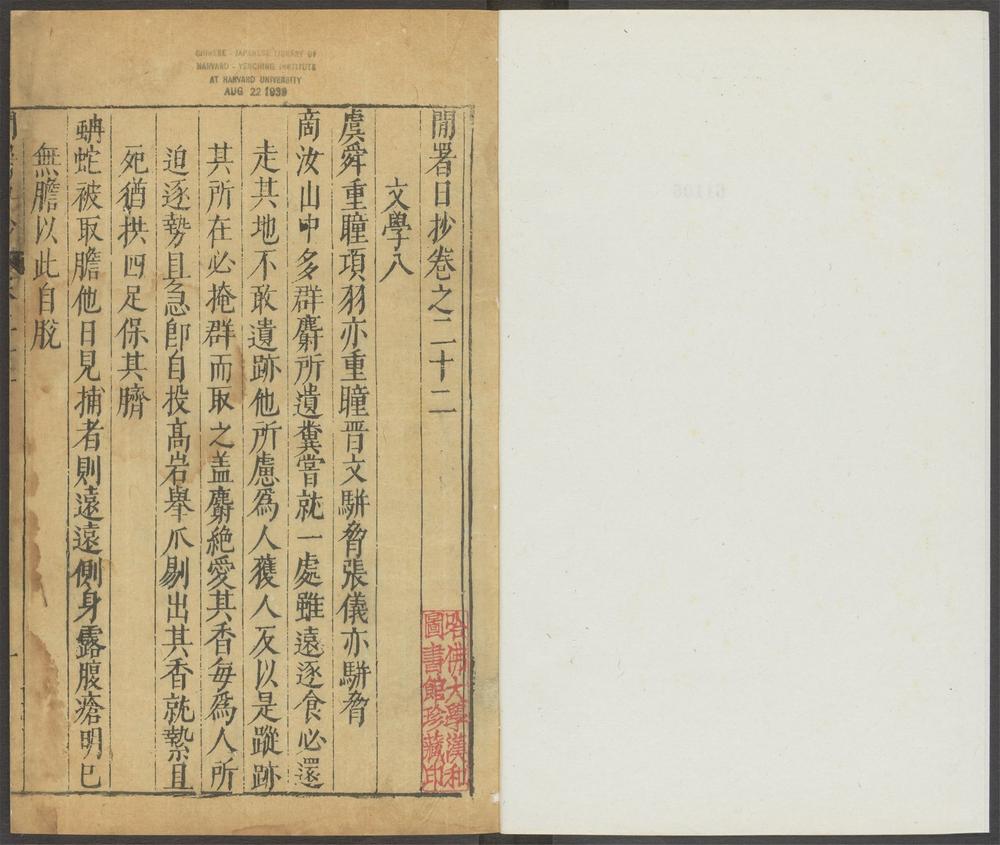 CHINESE - JAPANESE LIBRARY OF
HARVARD - YENCHING INSTITUTE
AT HARVARD UNIVERSITY
AUG 22 1939
閒署日抄卷之二十二
文學八
虞舜重瞳項羽亦重瞳晋文駢脅張儀亦駢脅
商汝山中多群麝所遺糞嘗就一處雖遠逐食必還
走其地不敢遺跡他所慮爲人獲人反以是蹤跡
其所在必掩群而取之盖麝絶愛其香每爲人所
迫逐勢且急卽自投高岩舉爪剔出其香就縶且
死猶拱四足保其臍
蚺蛇被取膽他日見捕者則遠遠側身露腹瘡明已
無膽以此自脫
哈佛大學漢和
圖書館珍藏印